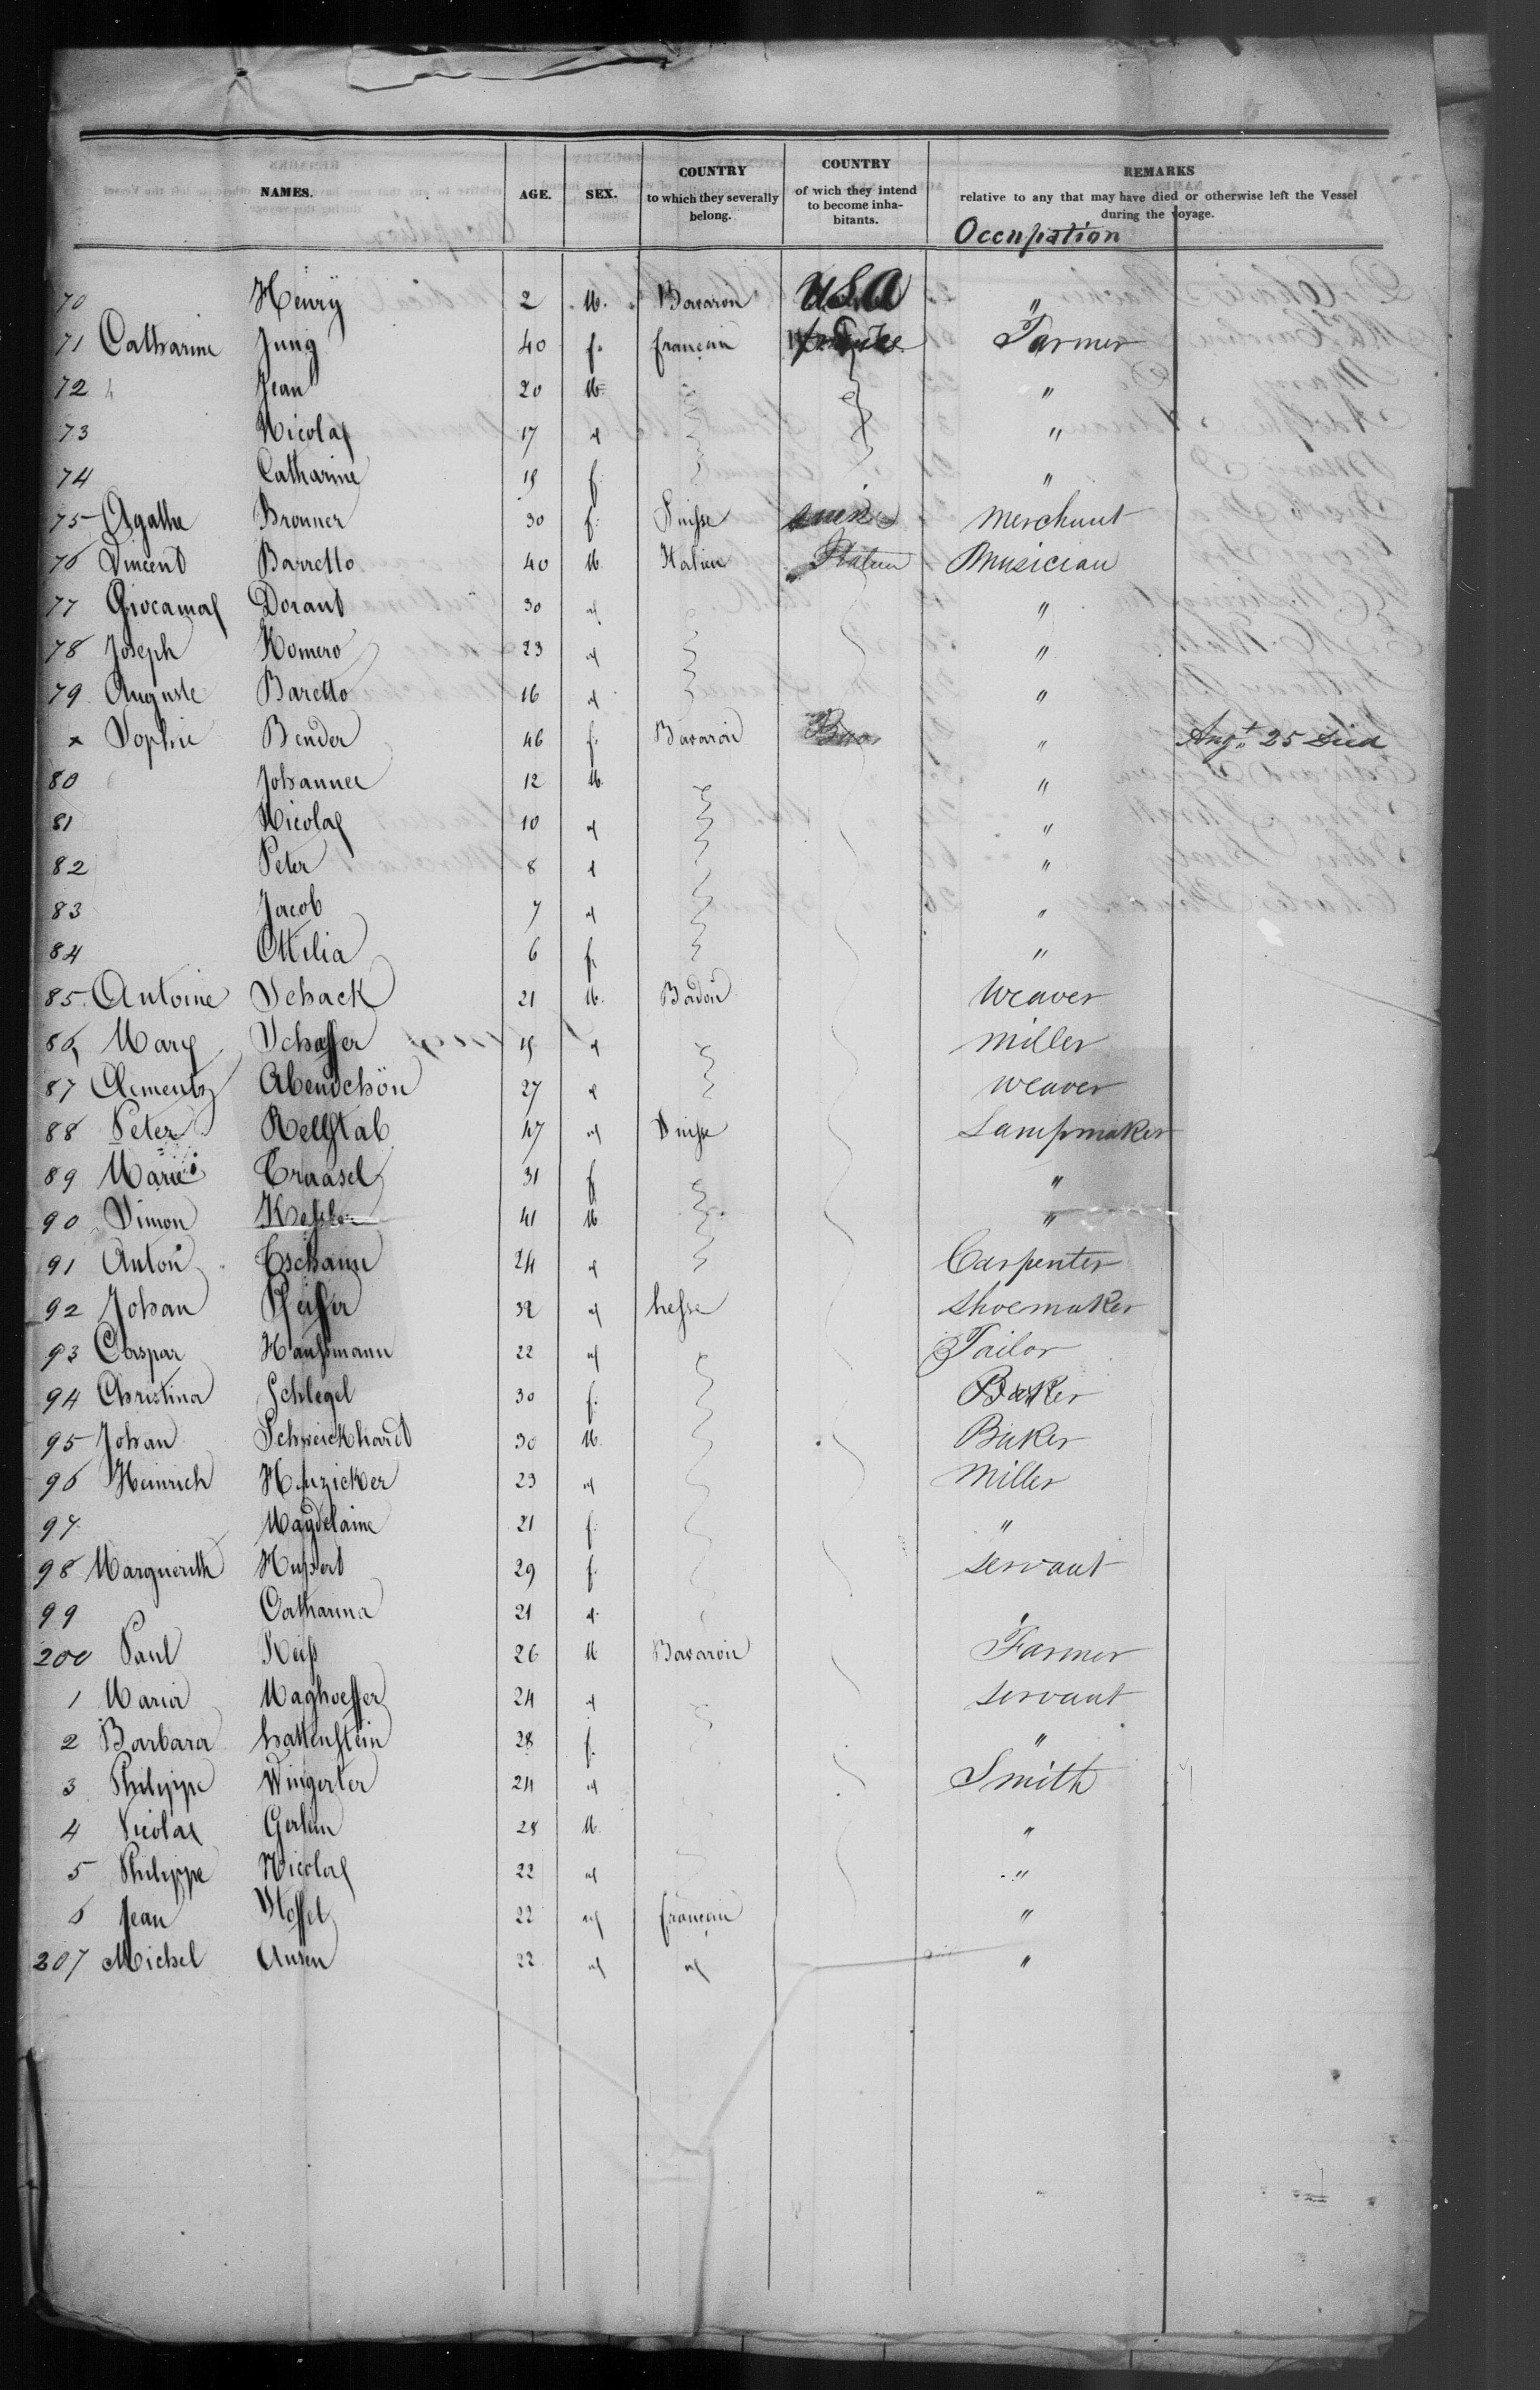 NAMES. AGE. SEX. COUNTRY to which they severally belong. COUNTRY of wich they intend to become inhabitants. REMARKS relative to any that may have died or otherwise left the Vessel during the voyage.
Occupation
70 Henry 2 M. Bavarois USA "
71 Catharine Jung 40 f. francais Farmer
72 Jean 20 M. "
73 Nicolas 17 " "
74 Catharine 19 f. "
75 Agathe Bronner 30 f. Suisse Merchant
76 Vincent Barretto 40 M. Italien Italien Musician
77 Dorant 30 " "
78 Joseph Romero 23 " "
79 Auguste Baretto 16 " "
x Sophie Bender 46 f. Bavarois " Augt 25 Died
80 Johannes 12 M. "
81 Nicolas 10 " "
82 Peter 8 " "
83 Jacob 7 " "
84 Ottilia 6 f. "
85. Antoine Schack 21 M. Badois Weaver
86 Schaffer 19 " Miller
87 Clementz Abendschön 27 " Weaver
88 Peter Rellstab 47 " Suisse Lampmaker
89 Marie Traasel 31 f "
90 Simon Kessler 41 M "
91 Anton Tschann 24 " Carpenter
92 Johan Pfeiffer 32 " hesse Shoemaker
93 Caspar Haussmann 22 " Tailor
94 Christina Schlegel 30 f. Baker
95 Johan Schweickhardt 30 M. Baker
96 Heinrich Hunzicker 23 " Miller
97 Magdelaine 21 f. "
98 Marguerith Huppert 29 f. Servant
99 Catharina 21 " "
200 Paul Reiss 26 M Bavarois Farmer
1 Maria Maghoeffer 24 " Servant
2 Barbara hattenstein 28 f. "
3 Philippe Wingerter 24 " Smith
4 Nicolas Gerlein 28 M. "
5 Philippe Nicolas 22 " "
6 Jean Stoffel 22 " francais "
207 Michel Ansen 22 " " "